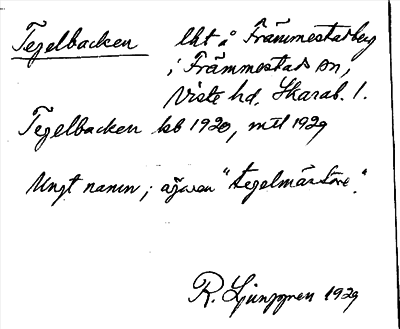 Tegelbacken lht å Främmestadsberg
i Främmestads sn,
Viste hd, Skarab. l.
Tegelbacken kb 1920, mtl 1929
Ungt namn; ägaren "tegelmästare".
R. Ljunggren 1929